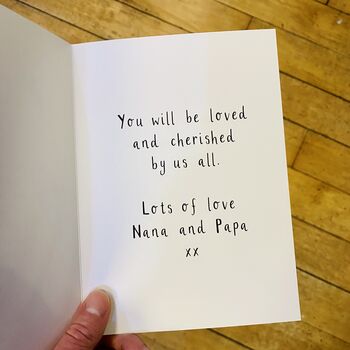 You will be loved
and cherished
by us all.
Lots of love
Nana and Papa
xx